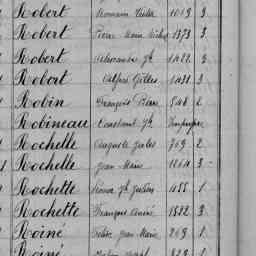 Robert Romain Victor 1019 3
Robert Pierre Marie Michel 1373 3
Robert Alexandre Jh 1422 3
Robert Alfred Gilles 1431 3
Robin François Pierre 548 2
Robineau Constant Jh Impropre
Rochelle Auguste Jules 769 2
Rochelle Jean Marie 1264 3
Rochette Jh Julien 1155 1
Rochette François Aimé 1522 3
Roiné Jean Marie 269 1
Roiné 829 1